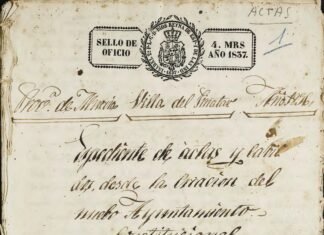 ACTAS
1
SELLO DE OFICIO
4. MRS AÑO 1837.
Prov.ª de Murcia Villa del Pinatar Año 1836
Expediente de actas y cabil
dos, desde la creacion del
nuebo Ayuntamiento
Constitucional